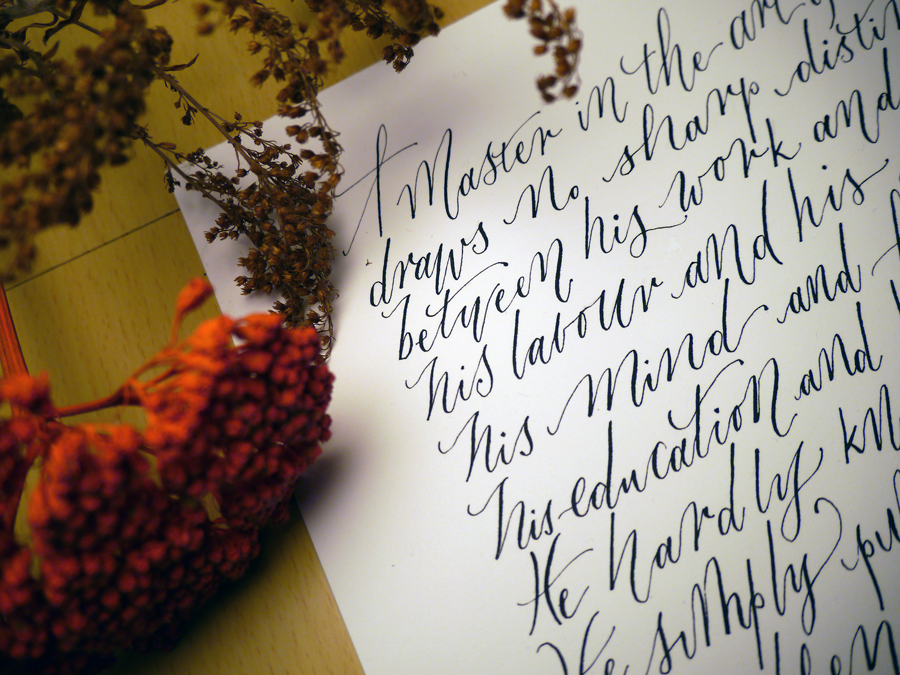 A Master in the art
draws no sharp distin
between his work and
his labour and his
his mind and
his education and
He hardly kn
He simply pu